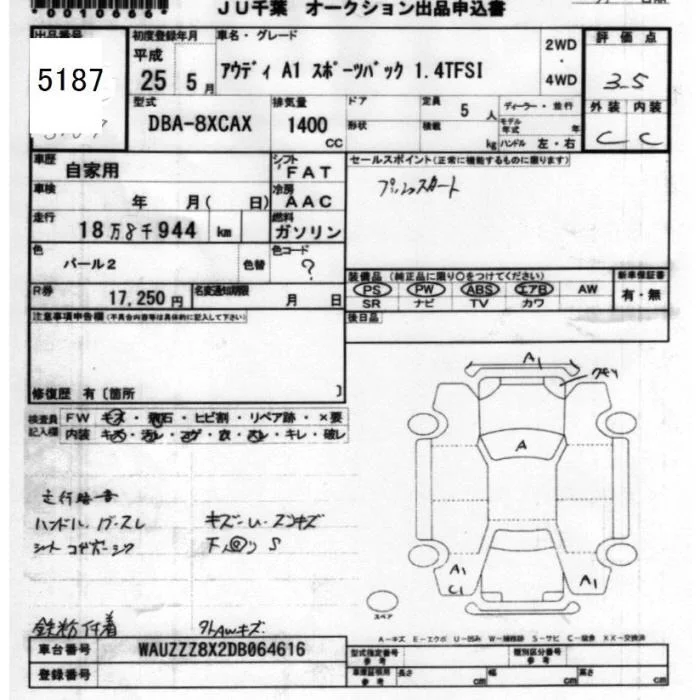 *0010666*
JU千葉 オークション出品申込書
出品番号
5187
初度登録年月
平成
25 5月
車名・グレード
アウディ A1 スポーツバック 1.4TFSI
2WD
・
4WD
評価点
3.5
外装 内装
C C
型式
DBA-8XCAX
排気量
1400
CC
ドア
形状
定員 5 人
積載 kg
ディーラー・並行
モデル年式 年
ハンドル 左・右
車歴
自家用
シフト
FAT
車検 年 月( 日)
冷房
AAC
走行
18万8千944 km
燃料
ガソリン
色
パール2
色替
色コード
?
R券
17,250円
名変通知期限
月 日
セールスポイント(正常に機能するものに限ります)
プッシュスタート
装備品 (純正品に限り○をつけてください)
PS PW ABS エアB AW
SR ナビ TV カワ
新車保証書
有・無
後日品
注意事項申告欄(不具合内容等は具体的に記入して下さい)
修復歴 有〔箇所 〕
検査員
記入欄
FW キズ・飛石・ヒビ割・リペア跡・×要
内装 キズ・汚レ・コゲ・穴・スレ・キレ・破レ
ハンドル、ノブスレ
下回りS
鉄粉付着
外AWキズ
A1
クモリ
A
A1
C1
A1
スペア
A-キズ E-エクボ U-凹み W-補修跡 S-サビ C-腐食 XX-交換済
車台番号
WAUZZZ8X2DB064616
登録番号
型式指定番号
参考
類別区分番号
参考
車庫証明用
参考
長さ cm
幅 cm
高さ cm